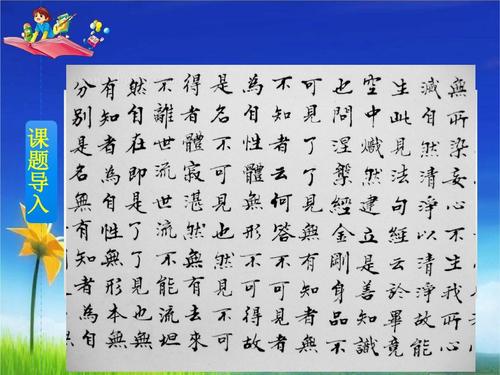 課题导入
無所染妄心不生我所心
滅自然清淨以清淨故能
生此見法句經云於畢竟
空中熾然建立是善知識
也問涅槃經金剛身品不
可見了了見無不知者無
不知者云何答不可見者
為自性體無形不可得故
是名不可見也然見不可
得者體寂湛然無有去來
不離世流世流不能流坦
然自在即是了了見也無
有知者為自性無形本無
分別是名無有知者為自